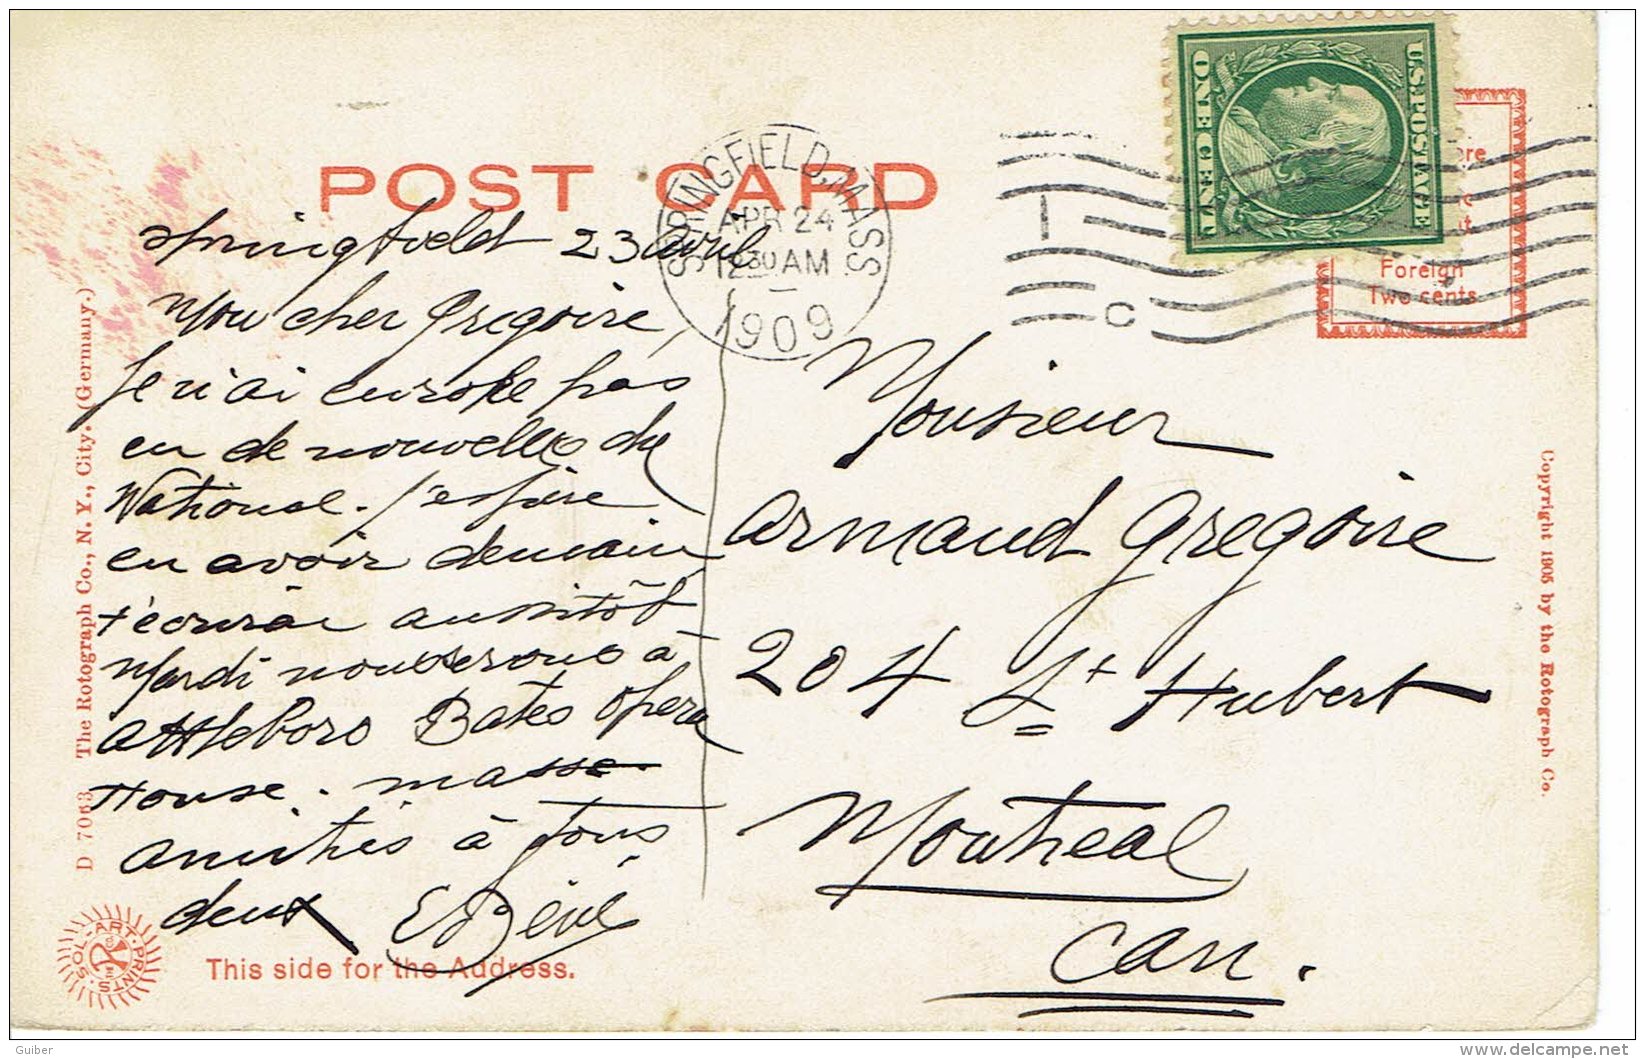 POST CARD
SPRINGFIELD, MASS.
APR 24
12 30 AM
1909
C
U.S. POSTAGE
ONE CENT
Foreign
Two cents
Springfield 23 avril
Mon cher Gregoire,
Je n'ai encore pas
eu de nouvelles du
National. J'espère
en avoir demain,
t'écrirai aussitôt
Mardi nous serons à
Attleboro Bates Opera
House. Mass.
amitiés à tous
deux
Monsieur
Armand Gregoire
204 St Hubert
Montreal
Can.
This side for the Address.
D 7063 The Rotograph Co., N. Y., City. (Germany.)
SOL-ART-PRINTS
Copyright 1905 by the Rotograph Co.
Guiber
www.delcampe.net